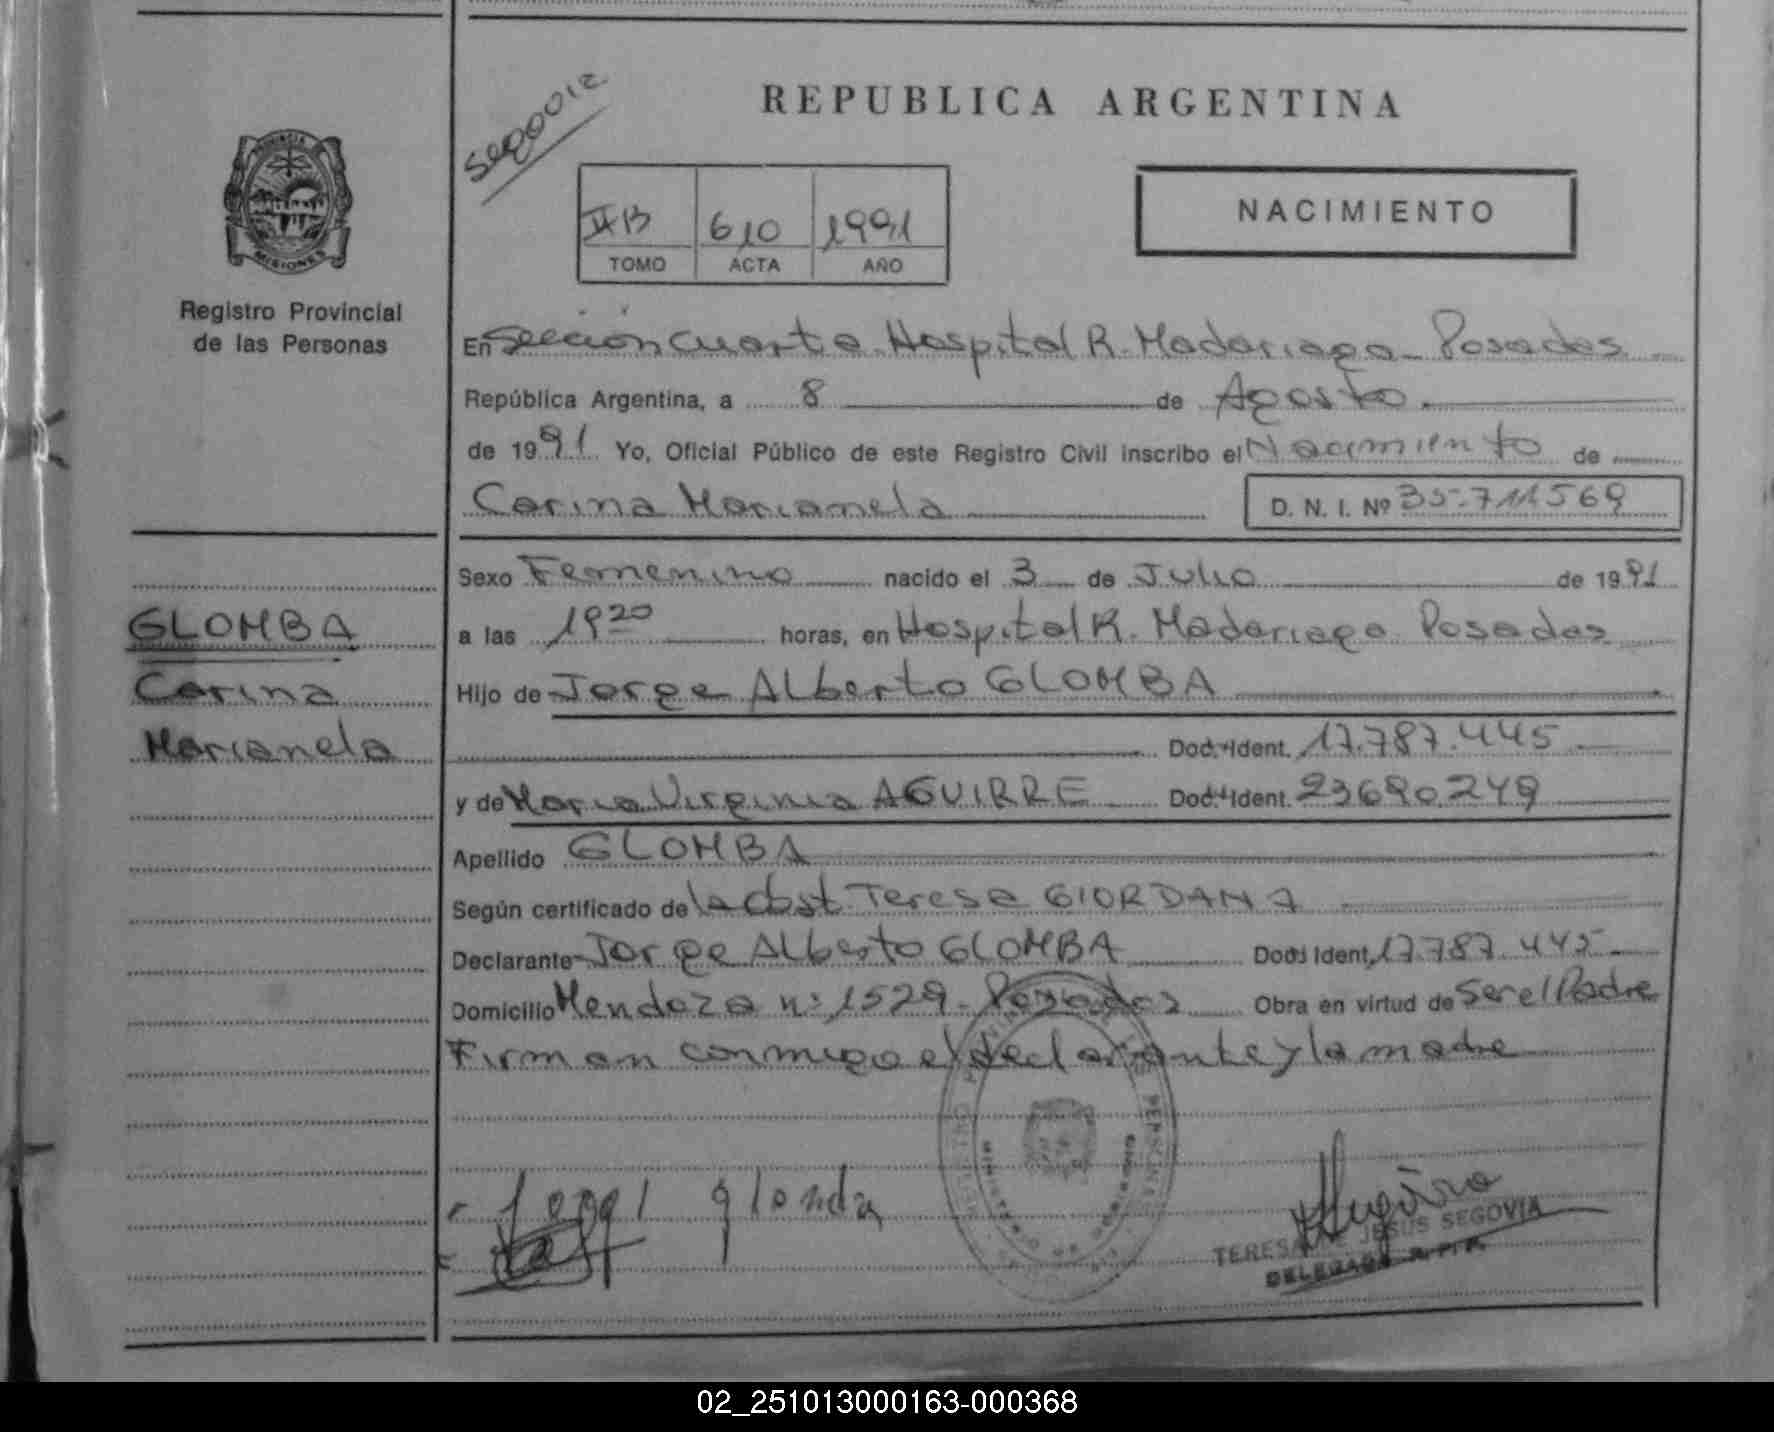 REPUBLICA ARGENTINA
NACIMIENTO
II B 610 1991
TOMO ACTA AÑO
PROVINCIA
MISIONES
Registro Provincial
de las Personas
En Sección Cuarta Hospital R. Madariaga - Posadas
República Argentina, a 8 de Agosto
de 1991 Yo, Oficial Público de este Registro Civil inscribo el Nacimiento de
Carina Marianela D. N. I. Nº 35.711569
Sexo Femenino nacido el 3 de Julio de 1991
a las 19 20 horas, en Hospital R. Madariaga Posadas
Hijo de Jorge Alberto GLOMBA
Doc. Ident. 17.787.445
y de Maria Virginia AGUIRRE Doc. Ident. 23690249
Apellido GLOMBA
Según certificado de la Obst Teresa GIORDANA
Declarante Jorge Alberto GLOMBA Doc. Ident. 17.787.445
Domicilio Mendoza nº 1529 - Posadas Obra en virtud de Ser el Padre
Firman conmigo el declarante y la madre
GLOMBA
Carina
Marianela
TERESA DE JESUS SEGOVIA
DELEGADA R. P. P.
02_251013000163-000368